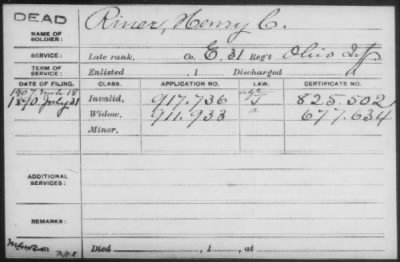 DEAD
NAME OF SOLDIER: Riner, Henry C.
SERVICE: Late rank, Co. E, 31 Reg't Ohio Inf.
TERM OF SERVICE: Enlisted , 1 Discharged
DATE OF FILING. CLASS. APPLICATION NO. LAW. CERTIFICATE NO.
1907 Mch 18 Invalid, 917.736 825.502
1890 July 31 Widow, 911.933 677.634
Minor,
ADDITIONAL SERVICES:
REMARKS:
Died , 1 , at